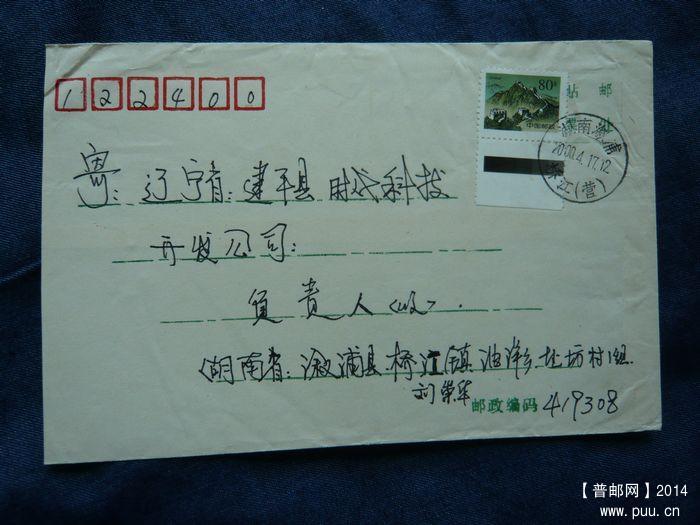 122400
80分
中国邮政
贴 邮
湖南溆浦
2000.4.17.12
桥江(营)
寄：辽宁省：建平县 时代科技
开发公司：
负责人 <收>.
<湖南省：溆浦县桥江镇油洋乡 坊村1组
刘荣华
邮政编码 419308
【普邮网】2014
www.puu.cn